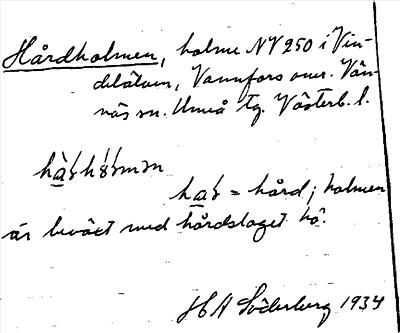 Hårdholmen, holme NV 250 i Vin-
delälven, Vannfors omr. Vän-
näs sn. Umeå tg. Västerb. l.
= hård; holmen
är beväxt med hårdslaget hö.
H A Söderberg 1934